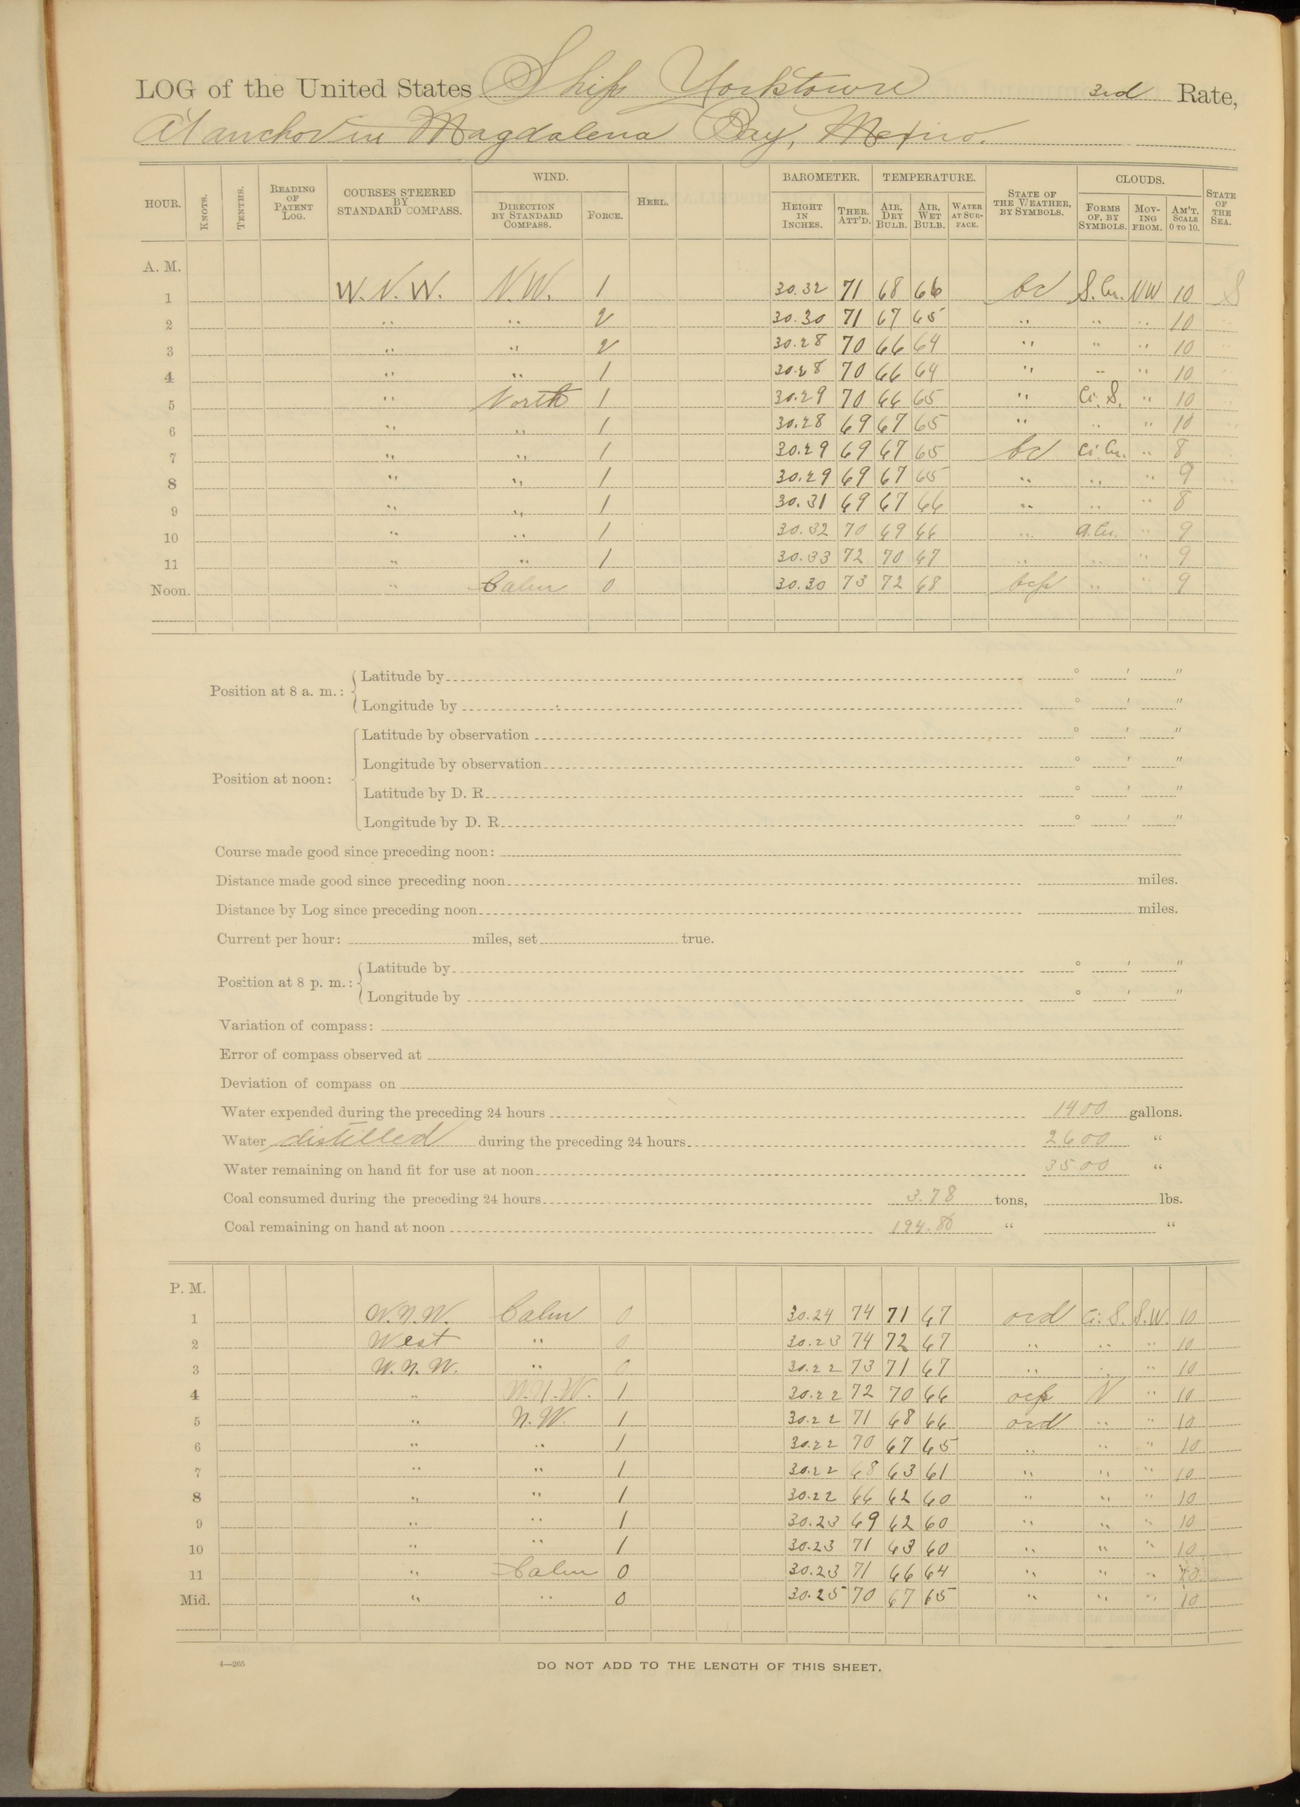 LOG of the United States Ship Yorktown 3rd Rate,
At anchor in Magdalena Bay, Mexico.
HOUR. KNOTS. TENTHS. READING OF PATENT LOG. COURSES STEERED BY STANDARD COMPASS. WIND. DIRECTION BY STANDARD COMPASS. FORCE. HEEL. BAROMETER. HEIGHT IN INCHES. THER. ATT'D. TEMPERATURE. AIR, DRY BULB. AIR, WET BULB. WATER AT SURFACE. STATE OF THE WEATHER, BY SYMBOLS. CLOUDS. FORMS OF, BY SYMBOLS. MOVING FROM. AM'T. SCALE 0 TO 10. STATE OF THE SEA.
A. M.
1 W. N. W. N. W. 1 30.32 71 68 66 bc S. Cu. NW 10 S
2 " " 2 30.30 71 67 65 " " " 10
3 " " 2 30.28 70 66 64 " " " 10
4 " " 1 30.28 70 66 64 " " " 10
5 " North 1 30.29 70 66 65 " Ci. S. " 10
6 " " 1 30.28 69 67 65 " " " 10
7 " " 1 30.29 69 67 65 bc Ci. Cu. " 8
8 " " 1 30.29 69 67 65 " " " 9
9 " " 1 30.31 69 67 66 " " " 8
10 " " 1 30.32 70 69 66 " a. Cu. " 9
11 " " 1 30.33 72 70 67 " " " 9
Noon. " Calm 0 30.30 73 72 68 bcp " " 9
Position at 8 a. m.: Latitude by ° ' "
Longitude by ° ' "
Position at noon: Latitude by observation ° ' "
Longitude by observation ° ' "
Latitude by D. R. ° ' "
Longitude by D. R. ° ' "
Course made good since preceding noon:
Distance made good since preceding noon miles.
Distance by Log since preceding noon miles.
Current per hour: miles, set true.
Position at 8 p. m.: Latitude by ° ' "
Longitude by ° ' "
Variation of compass:
Error of compass observed at
Deviation of compass on
Water expended during the preceding 24 hours 1400 gallons.
Water distilled during the preceding 24 hours 2600 "
Water remaining on hand fit for use at noon 3500 "
Coal consumed during the preceding 24 hours 3.78 tons, lbs.
Coal remaining on hand at noon 194.86 " "
P. M.
1 W.N.W. Calm 0 30.24 74 71 67 ocd Ci. S. S.W. 10
2 West " 0 30.23 74 72 67 " " " 10
3 W. N. W. " 0 30.22 73 71 67 " " " 10
4 " W.N.W. 1 30.22 72 70 66 ocp N " 10
5 " N. W. 1 30.22 71 68 66 ocd " " 10
6 " " 1 30.22 70 67 65 " " " 10
7 " " 1 30.22 68 63 61 " " " 10
8 " " 1 30.22 66 62 60 " " " 10
9 " " 1 30.23 69 62 60 " " " 10
10 " " 1 30.23 71 63 60 " " " 10
11 " Calm 0 30.23 71 66 64 " " " 10
Mid. " " 0 30.25 70 67 65 " " " 10
4—265
DO NOT ADD TO THE LENGTH OF THIS SHEET.